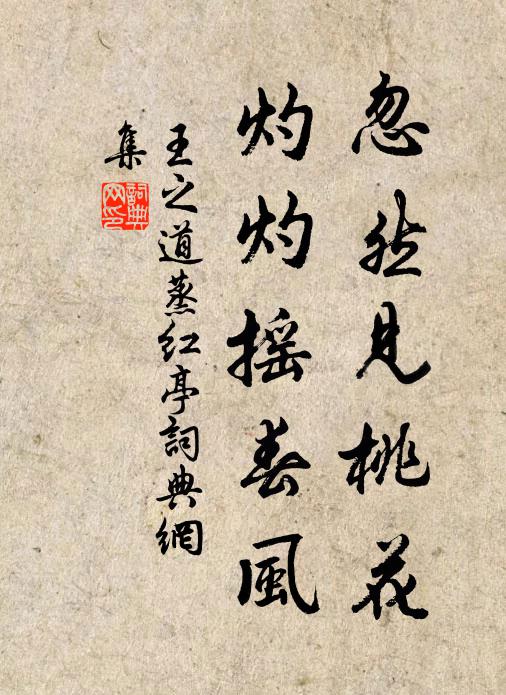 忽然見桃花
灼灼搖春風
王之道蒸紅亭詞典網
集
詞典
网印